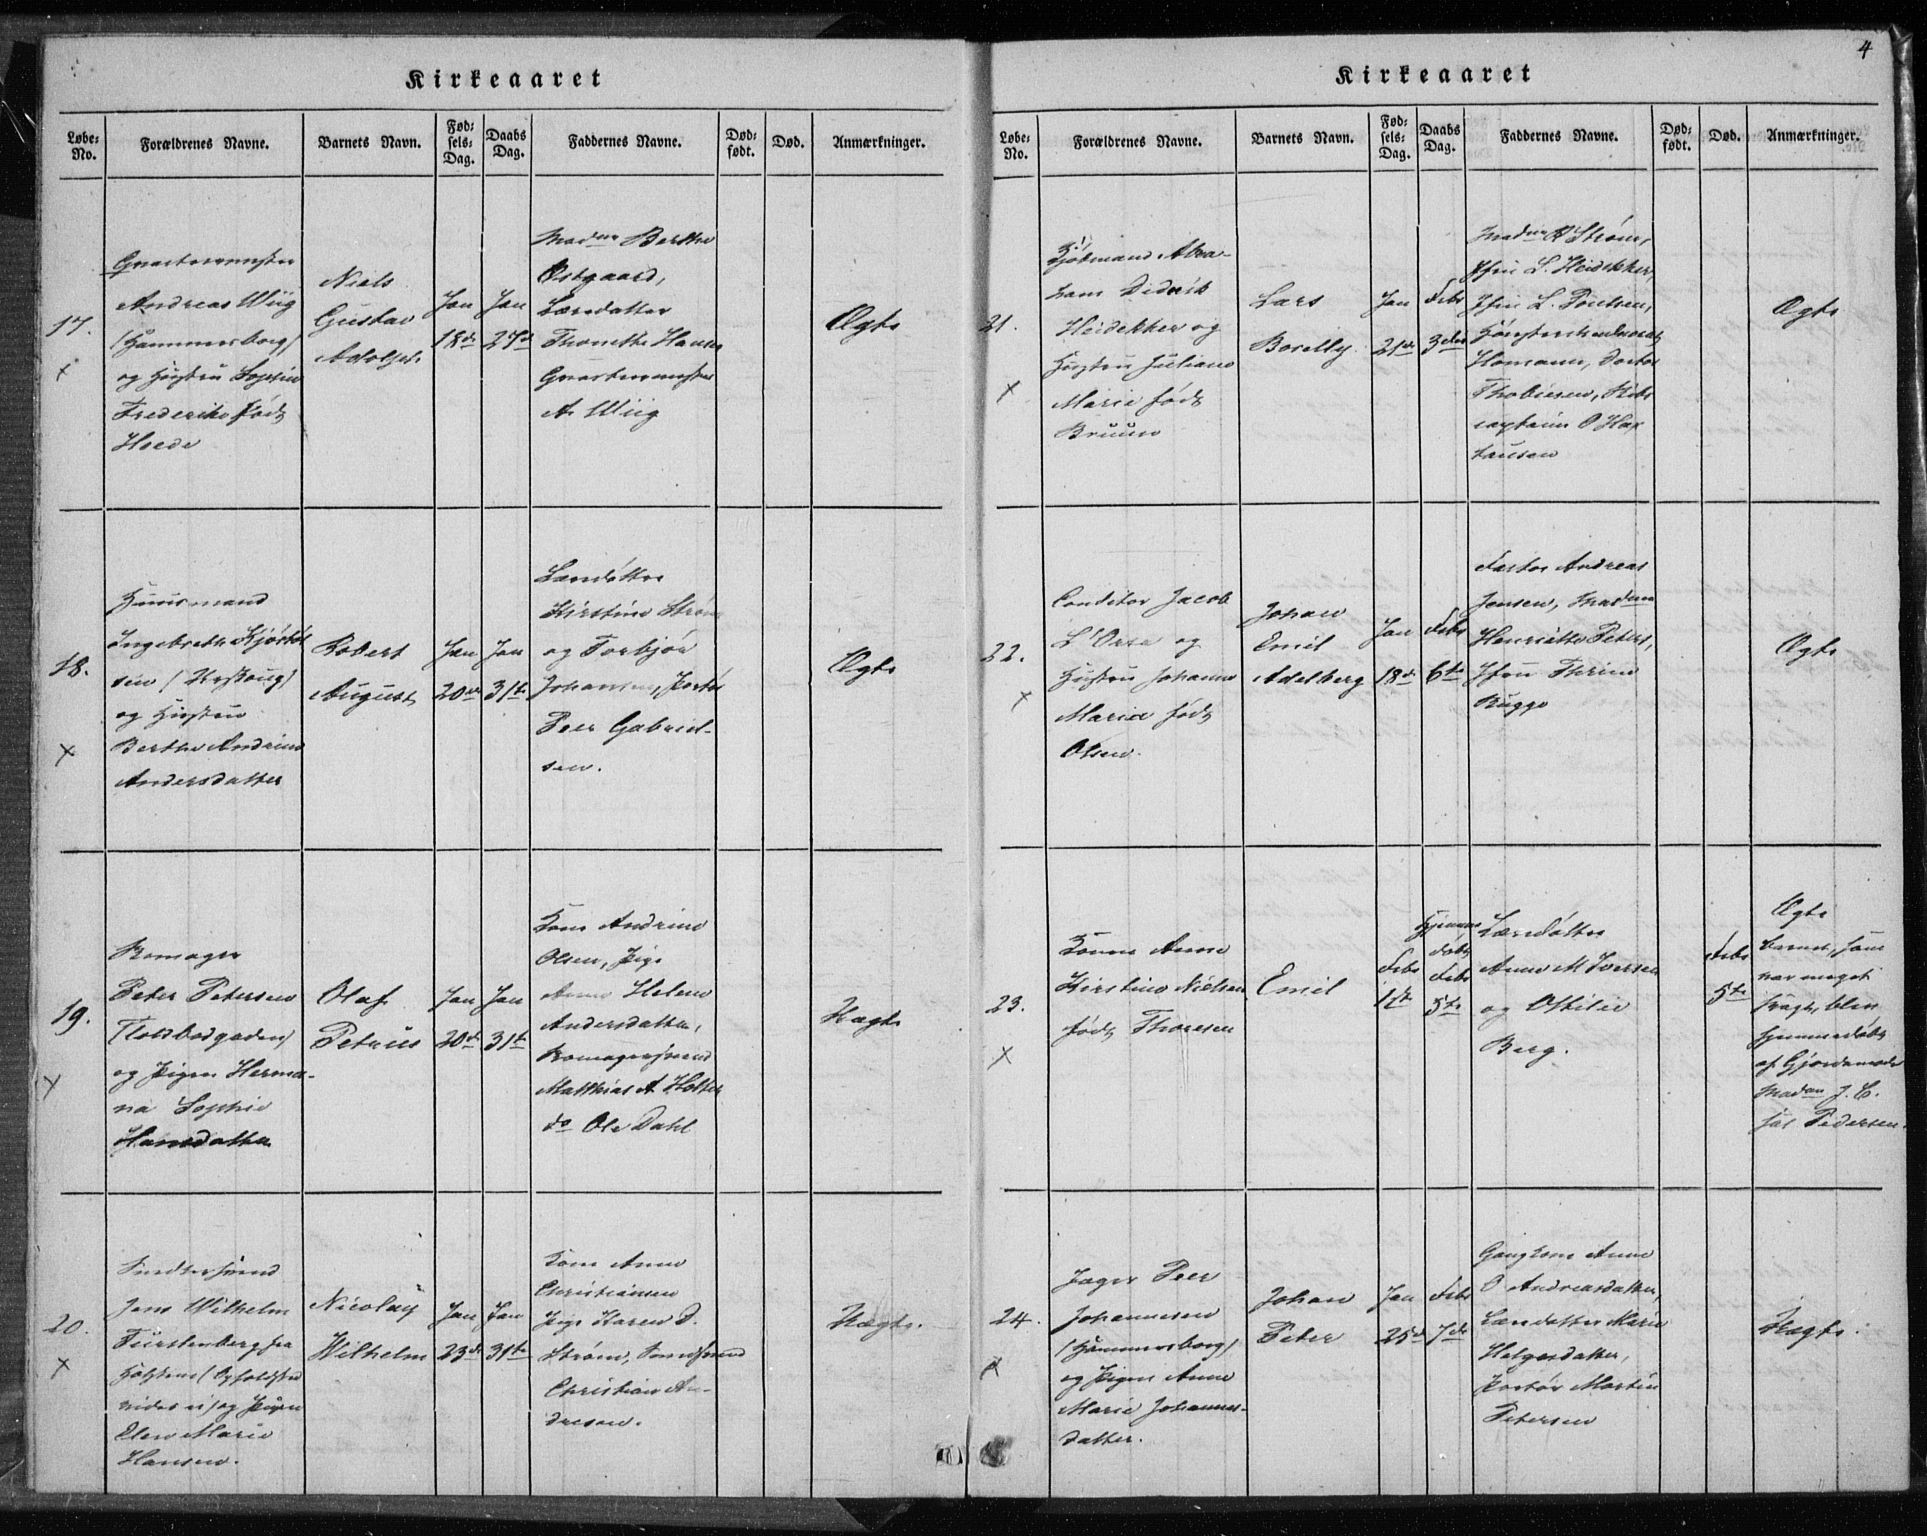 4
Kirkeaaret
Løbe-No. Forældrenes Navne. Barnets Navn. Fødsels-Dag. Daabs Dag. Faddernes Navne. Dødfødt. Død. Anmærkninger.
17.
Andreas Wiig
(Hammersborg)
og Hustru Sophie
Frederike født
Niels
Gustav
Adolph
Jan
18de
Jan
27de
Madme Berthe
Østgaard,
Thonette
A. Wiig
Ægte
18.
Huusmand
og Hustru
Berthe Andrine
Andersdatter
Robert
August
Jan
20de
Jan
31te
Kirstine Strøm
og Torbjør
Peer Gabriel-
sen.
Ægte
19.
Peter Petersen
og Pigen Herma-
na Sophie
Hansdatter
Olaf
Petrus
Jan
20de
Jan
31te
Kone Andrine
Olsen, Pige
Anne Helene
Andersdatter,
Matthias A Holter
do Ole Dahl
Uægte
20.
Jens Wilhelm
Fürstenberg fra
og Pigen
Elen Marie
Hansen.
Nicolay
Wilhelm
Jan
23de
Jan
31te
Kone Anne
Christiansen
Pige Karen D.
Strøm,
Christian An-
dresen.
Uægte.
Kirkeaaret
Løbe-No. Forældrenes Navne. Barnets Navn. Fødsels-Dag. Daabs Dag. Faddernes Navne. Dødfødt. Død. Anmærkninger.
21.
Kjøbmand Abra-
ham Didrik
Heidekker og
Hustru Juliane
Marie født
Bruun
Lars
Borelly
Jan
21de
Febr
3die
Madme Strøm,
Jfru L. Heidekker,
Jfru L. Poulsen,
Homann, Doctor
Thobiesen, Skibs
captain O Hax
thausen
Ægte
22.
Conditor Jacob
L'Orsa og
Hustru Johanne
Maria født
Olsen.
Johan
Emil
Adelberg
Jan
18de
Febr
6te
Andreas
Jensen, Madme
Henriette Peters,
Jfru Thrine
Rügge
Ægte
23.
Konen Anne
Kirstine Nielsen
født Thoresen
Emil
Febr
1te
Hjemme
døbt
Febr
5te
Anne M Iversen
og Ottilie
Berg.
Febr
5te
Ægte
Barnet, som
var meget
svagt, blev
hjemmedøbt
af Gjordemoder
Madme J. C.
Pedersen.
24.
Peer
Johannesen
(Hammersborg)
og Pigen Anne
Marie Johannes-
datter.
Johan
Peter
Jan
25de
Febr
7de
Gangkone Anne
O Andreasdatter,
Marie
Helgesdatter,
Martin
Petersen
Uægte.